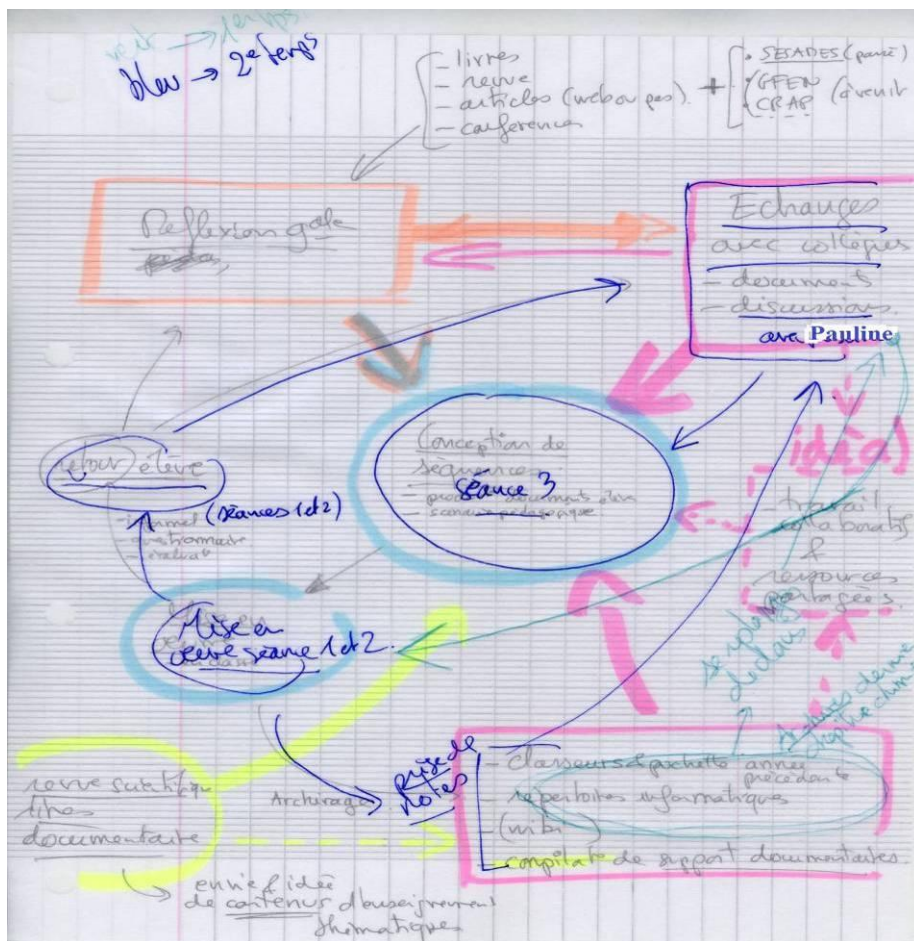 vert → 1er temps
bleu → 2e temps
- livres
- revue
- articles (web ou pas)
- conférences
+
• SESADES (passé)
GFEN
CRAP (à venir
Réflexion gale
Echanges
avec collègues
- document
- discussions
avec Pauline
idée(s)
- travail
collaboratif
&
ressources
partagées
Conception de
séquences
séance 3
- scénario pédagogique
retour élève
(séances 1 et 2)
- questionnaire
Mise en
œuvre séance 1 et 2.
se plonger
dedans
Archives
chapitre chimie
prise de
notes
Archivage
- classeurs et pochette année
précédente
- répertoires informatiques
- (wiki )
- compilat° de support documentaires
revue scientifique
livres
documentaire
envie & idée
de contenus d'enseignement
thématiques